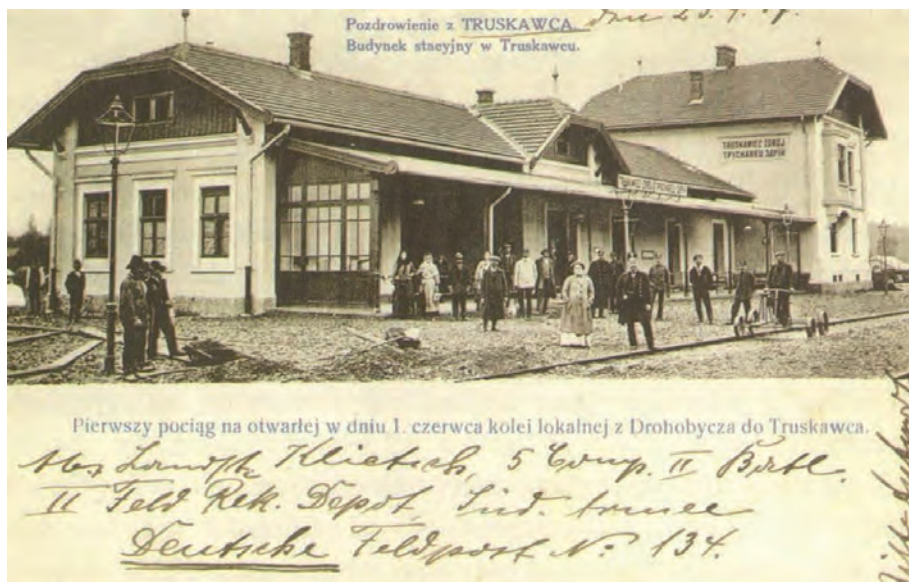 Pozdrowienie z TRUSKAWCA
Budynek stacyjny w Truskawcu.
TRUSKAWIEC ZDRÓJ
Pierwszy pociąg na otwartej w dniu 1. czerwca kolei lokalnej z Drohobycza do Truskawca.
Abs. Landst. Klietsch, 5 Comp. II Batl.
II Feld Rek. Depot, Süd. Armee
Deutsche Feldpost No. 134.